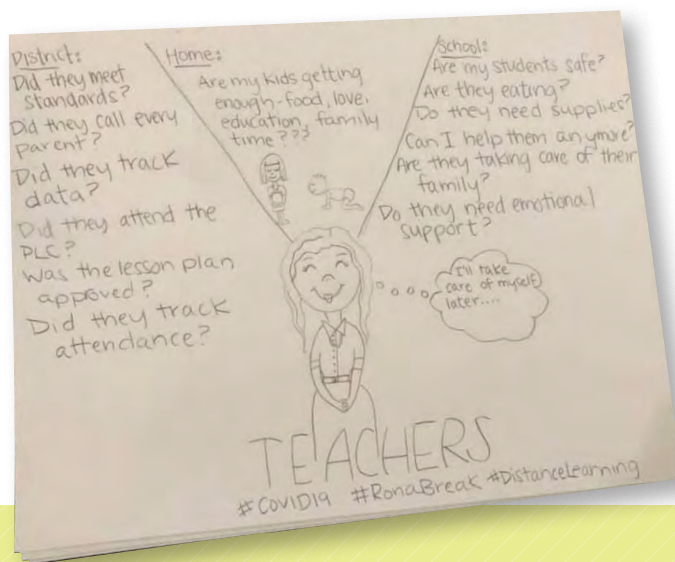 District:
Did they meet
standards?
Did they call every
parent?
Did they track
data?
Did they attend the
PLC?
Was the lesson plan
approved?
Did they track
attendance?
Home:
Are my kids getting
enough-food, love,
education, family
time???
School:
Are my students safe?
Are they eating?
Do they need supplies?
Can I help them anymore?
Are they taking care of their
family?
Do they need emotional
support?
I'll take
care of myself
later....
TEACHERS
#COVID19 #RonaBreak #DistanceLearning